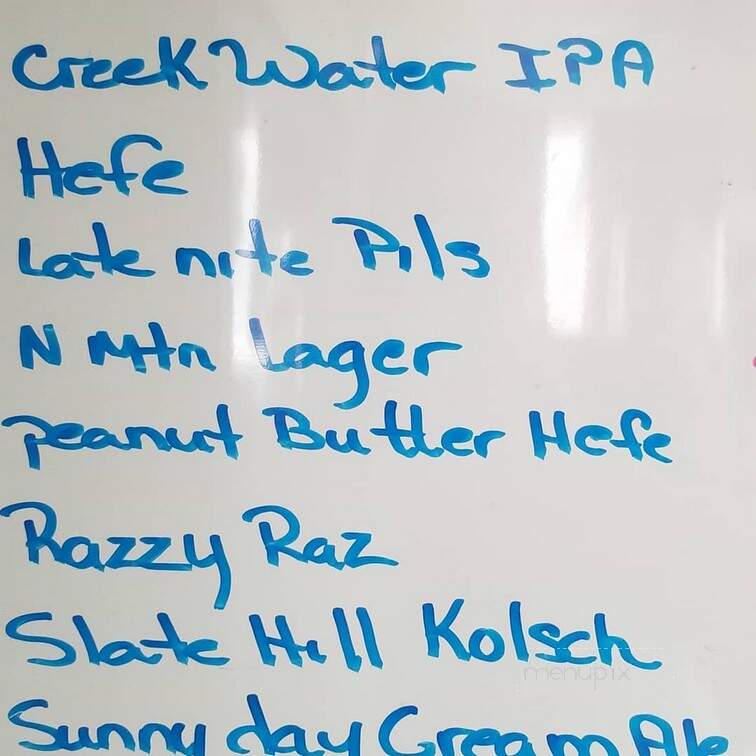 Creek Water IPA
Hefe
Late nite Pils
N Mtn Lager
Peanut Butter Hefe
Razzy Raz
Slate Hill Kolsch
menupix
Sunny day Cream Ale